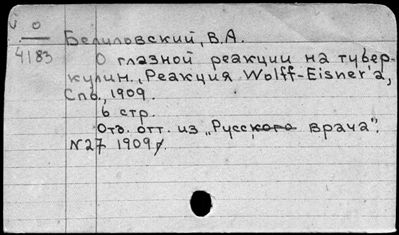 V o
4183
Белиловский, В.А.
О глазной реакции на тубер-
кулин. „Реакция Wolff-Eisner'a,
Спб., 1909.
6 стр.
Отд. отт. из „Русского врача".
N27 1909